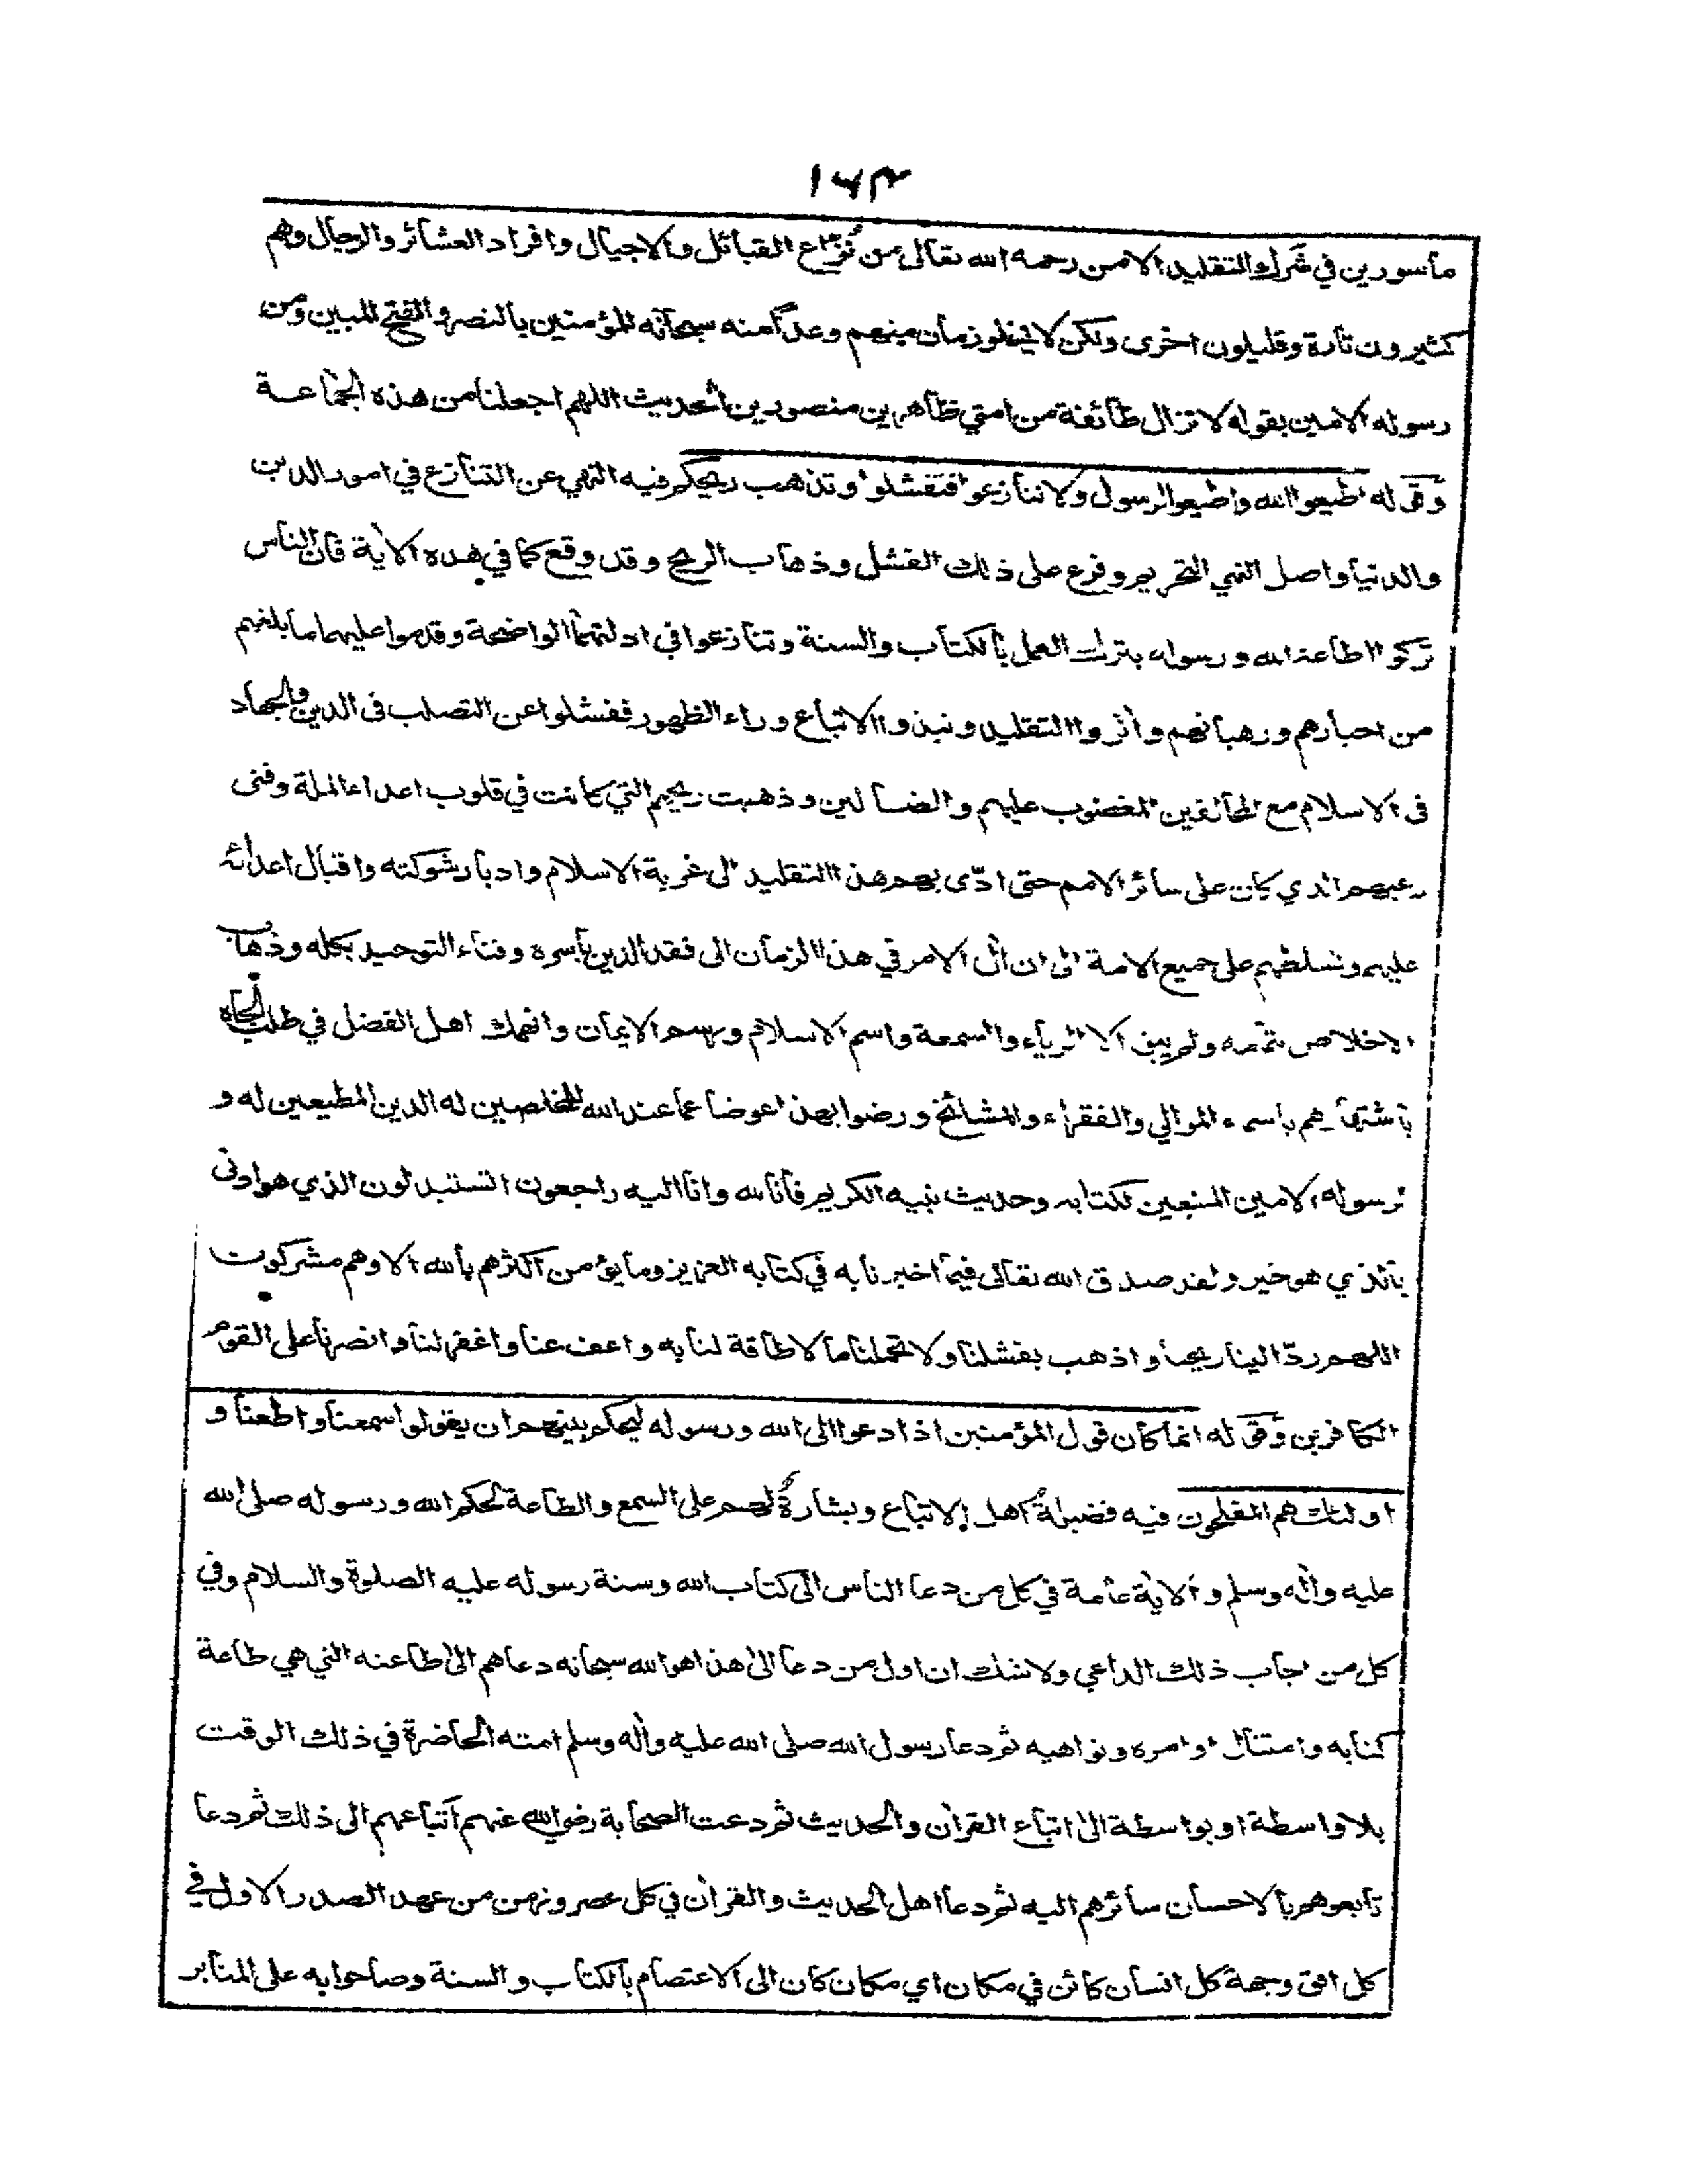 ١٦٣
مأسورين في شَرك التقليد الا من رحمه الله تعالى من نُزّاع القبائل والاجيال وافراد العشائر والرجال وهم
كثيرون تارة وقليلون اخرى ولكن لا يخلو زمان منهم وعداً منه سبحانه للمؤمنين بالنصر والفتح المبين ومن
رسوله الامين بقوله لا تزال طائفة من امتي ظاهرين منصورين الحديث اللهم اجعلنا من هذه الجماعة
وقوله اطيعوا الله واطيعوا الرسول ولا تنازعوا فتفشلوا وتذهب ريحكم فيه النهي عن التنازع في امور الدين
والدنيا واصل النهي التحريم وفرع على ذلك الفشل وذهاب الريح وقد وقع كما في هذه الاية فان الناس
تركوا اطاعة الله ورسوله بترك العمل بالكتاب والسنة وتنازعوا في ادلتهما الواضحة وقدموا عليهما ما بلغهم
من احبارهم ورهبانهم وأثروا التقليد ونبذوا الاتباع وراء الظهور ففشلوا عن التصلب فى الدين والجهاد
فى الاسلام مع المخالفين المغضوب عليهم والضالين وذهبت ريحهم التي كانت في قلوب اعداء الملة وفنى
رعبهم الذي كان على سائر الامم حتى ادّى بهم هذا التقليد الى غربة الاسلام وادبار شوكته واقبال اعدائه
عليهم وتسلطهم على جميع الامة الى ان أل الامر في هذا الزمان الى فقد الدين بأسره وفناء التوحيد بكله وذهاب
الاخلاص بتمامه ولم يبق الا الرياء والسمعة واسم الاسلام ورسم الايمان وانهمك اهل الفضل في طلب الجاه
باشتهارهم باسماء الموالي والفقراء والمشائخ ورضوا بهذا عوضا عما عند الله للمخلصين له الدين المطيعين له و
لرسوله الامين المتبعين لكتابه وحديث نبيه الكريم فانا لله وانا اليه راجعون اتستبدلون الذي هو ادنى
بالذي هو خير ولقد صدق الله تعالى فيما اخبرنا به في كتابه العزيز وما يؤمن اكثرهم بالله الا وهم مشركون
اللهم ردّ الينا ريحنا واذهب بفشلنا ولا تحملنا ما لا طاقة لنا به واعف عنا واغفر لنا وانصرنا على القوم
الكافرين وقوله انما كان قول المؤمنين اذا دعوا الى الله ورسوله ليحكم بينهم ان يقولوا سمعنا واطعنا و
اولئك هم المفلحون فيه فضيلةُ اهل الاتباع وبشارةٌ لهم على السمع والطاعة لحكم الله ورسوله صلى الله
عليه وأله وسلم والاية عامة في كل من دعا الناس الى كتاب الله وسنة رسوله عليه الصلوة والسلام وفي
كل من اجاب ذلك الداعي ولا شك ان اول من دعا الى هذا هو الله سبحانه دعاهم الى طاعته التي هي طاعة
كتابه وامتثال اوامره ونواهيه ثم دعا رسول الله صلى الله عليه وأله وسلم امته الحاضرة في ذلك الوقت
بلا واسطة او بواسطة الى اتباع القرأن والحديث ثم دعت الصحابة رضي الله عنهم أتباعهم الى ذلك ثم دعا
تابعوهم بالاحسان سائرهم اليه ثم دعا اهل الحديث والقرأن في كل عصر وزمن من عهد الصدر الاول في
كل افق وجهة كل انسان كائن في مكان اي مكان كان الى الاعتصام بالكتاب والسنة وصاحوا به على المنابر